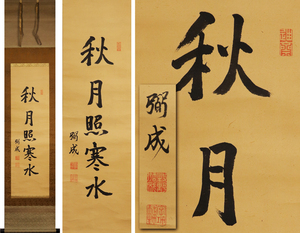 秋月照寒水
弼成
秋月照寒水
弼成
弼成
秋月